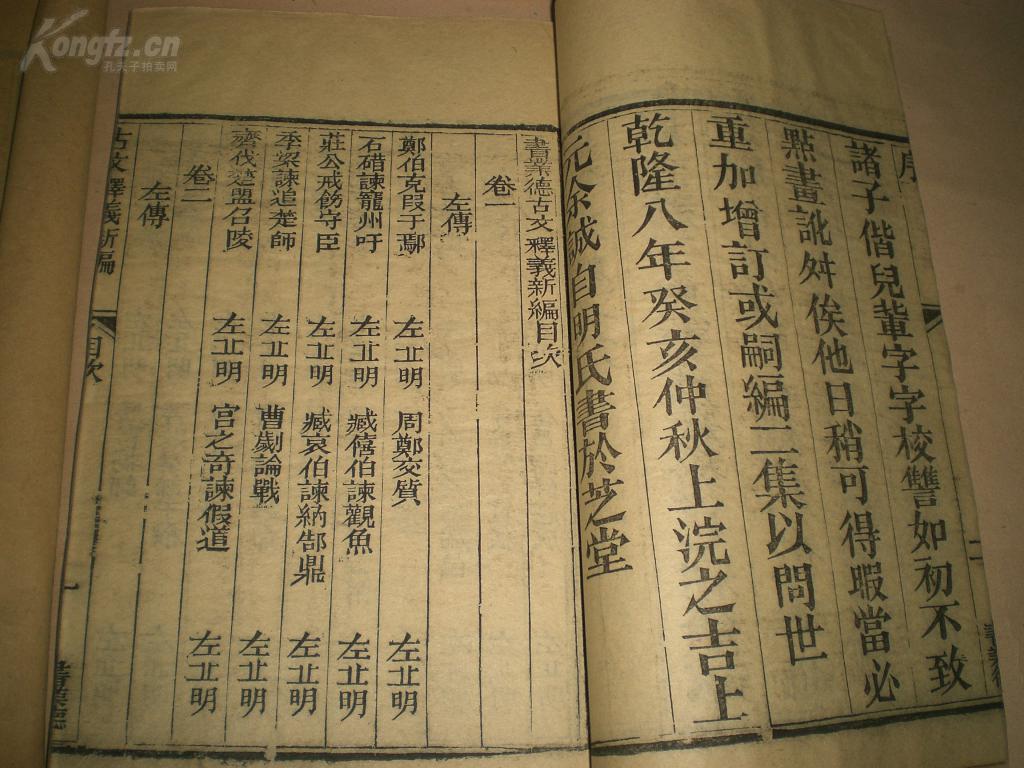 序
諸子偕兒輩字字校讐如初不致
點畫訛舛俟他日稍可得暇當必
重加增訂或嗣編二集以問世
乾隆八年癸亥仲秋上浣之吉上
元余誠自明氏書於芝堂
二
書業德古文釋義新編目次
卷一
左傳
鄭伯克叚于鄢 左丘明 周鄭交質 左丘明
石碏諫寵州吁 左丘明 臧僖伯諫觀魚 左丘明
莊公戒飭守臣 左丘明 臧哀伯諫納郜鼎 左丘明
季梁諫追楚師 左丘明 曹劌論戰 左丘明
齊伐楚盟召陵 左丘明 宮之奇諫假道 左丘明
卷二
左傳
古文釋義新編
目次
一
書業德
Kongfz.cn
孔夫子拍卖网